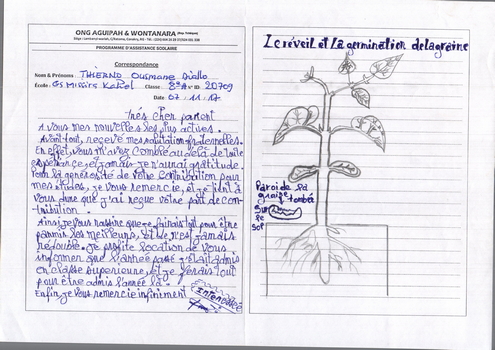 ONG AGUIPAH & WONTANARA (Rep. Guinée)
PROGRAMME D'ASSISTANCE SCOLAIRE
Correspondance
Nom & Prénoms : THIERNO Ousmane Diallo
École : GS Missirs KaRol Classe : 8e A N° ID: 20709
Date 07.11.17
Trés cher parent
A vous mes nouvelles les plus actives.
Avant tout, recevé mes salutation fraternelles.
En effet, vous m'avez comblé au delà de toute
espérance, et jamais je n'aurai gratitude.
Pour la générosité de votre contribution pour
mes études, je vous remercie, et je tient à
vous dire que j'ai reçue votre part de con-
tribution.
Ainsi je vous rassure que je fairais tout pour être
parmis les meilleurs, et de n'est jamais
redoublé. Je profite l'ocation de vous
informer que l'année passé j'était admis
en classe superieure, et je ferais tout
pour être admis l'année là.
Enfin, je vous remercie infiniment
Interessé
Le réveil et la germination de la graine
Paroi de la
graine tombée
Sur
le
Sol